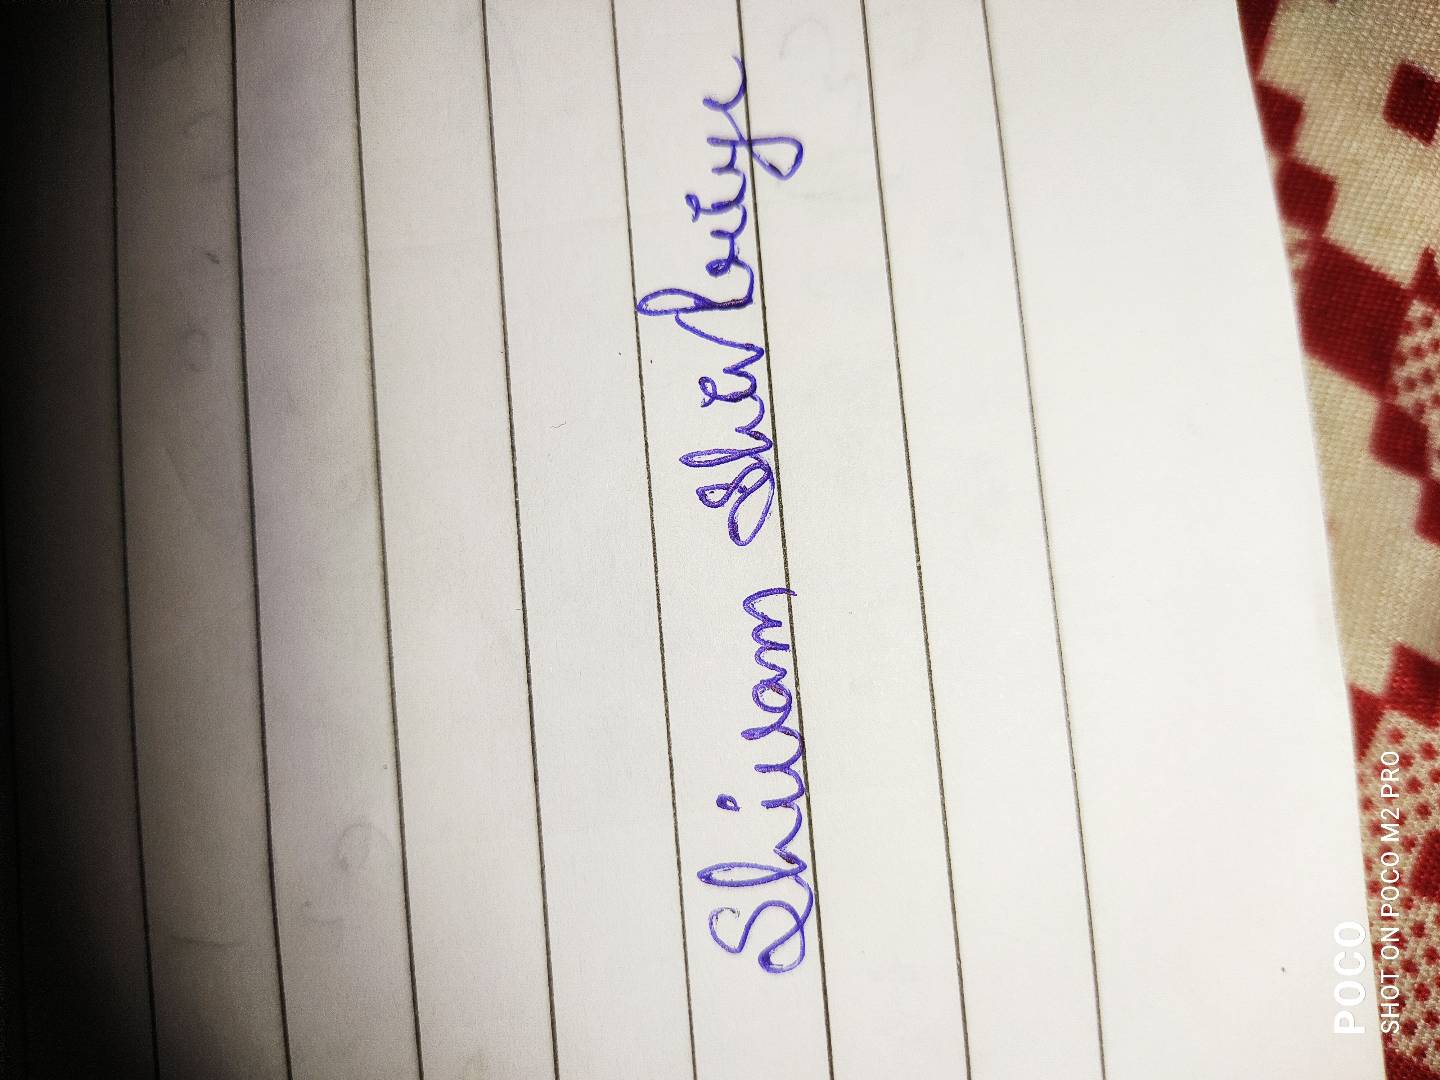 Shivam Shivpriye
POCO
SHOT ON POCO M2 PRO